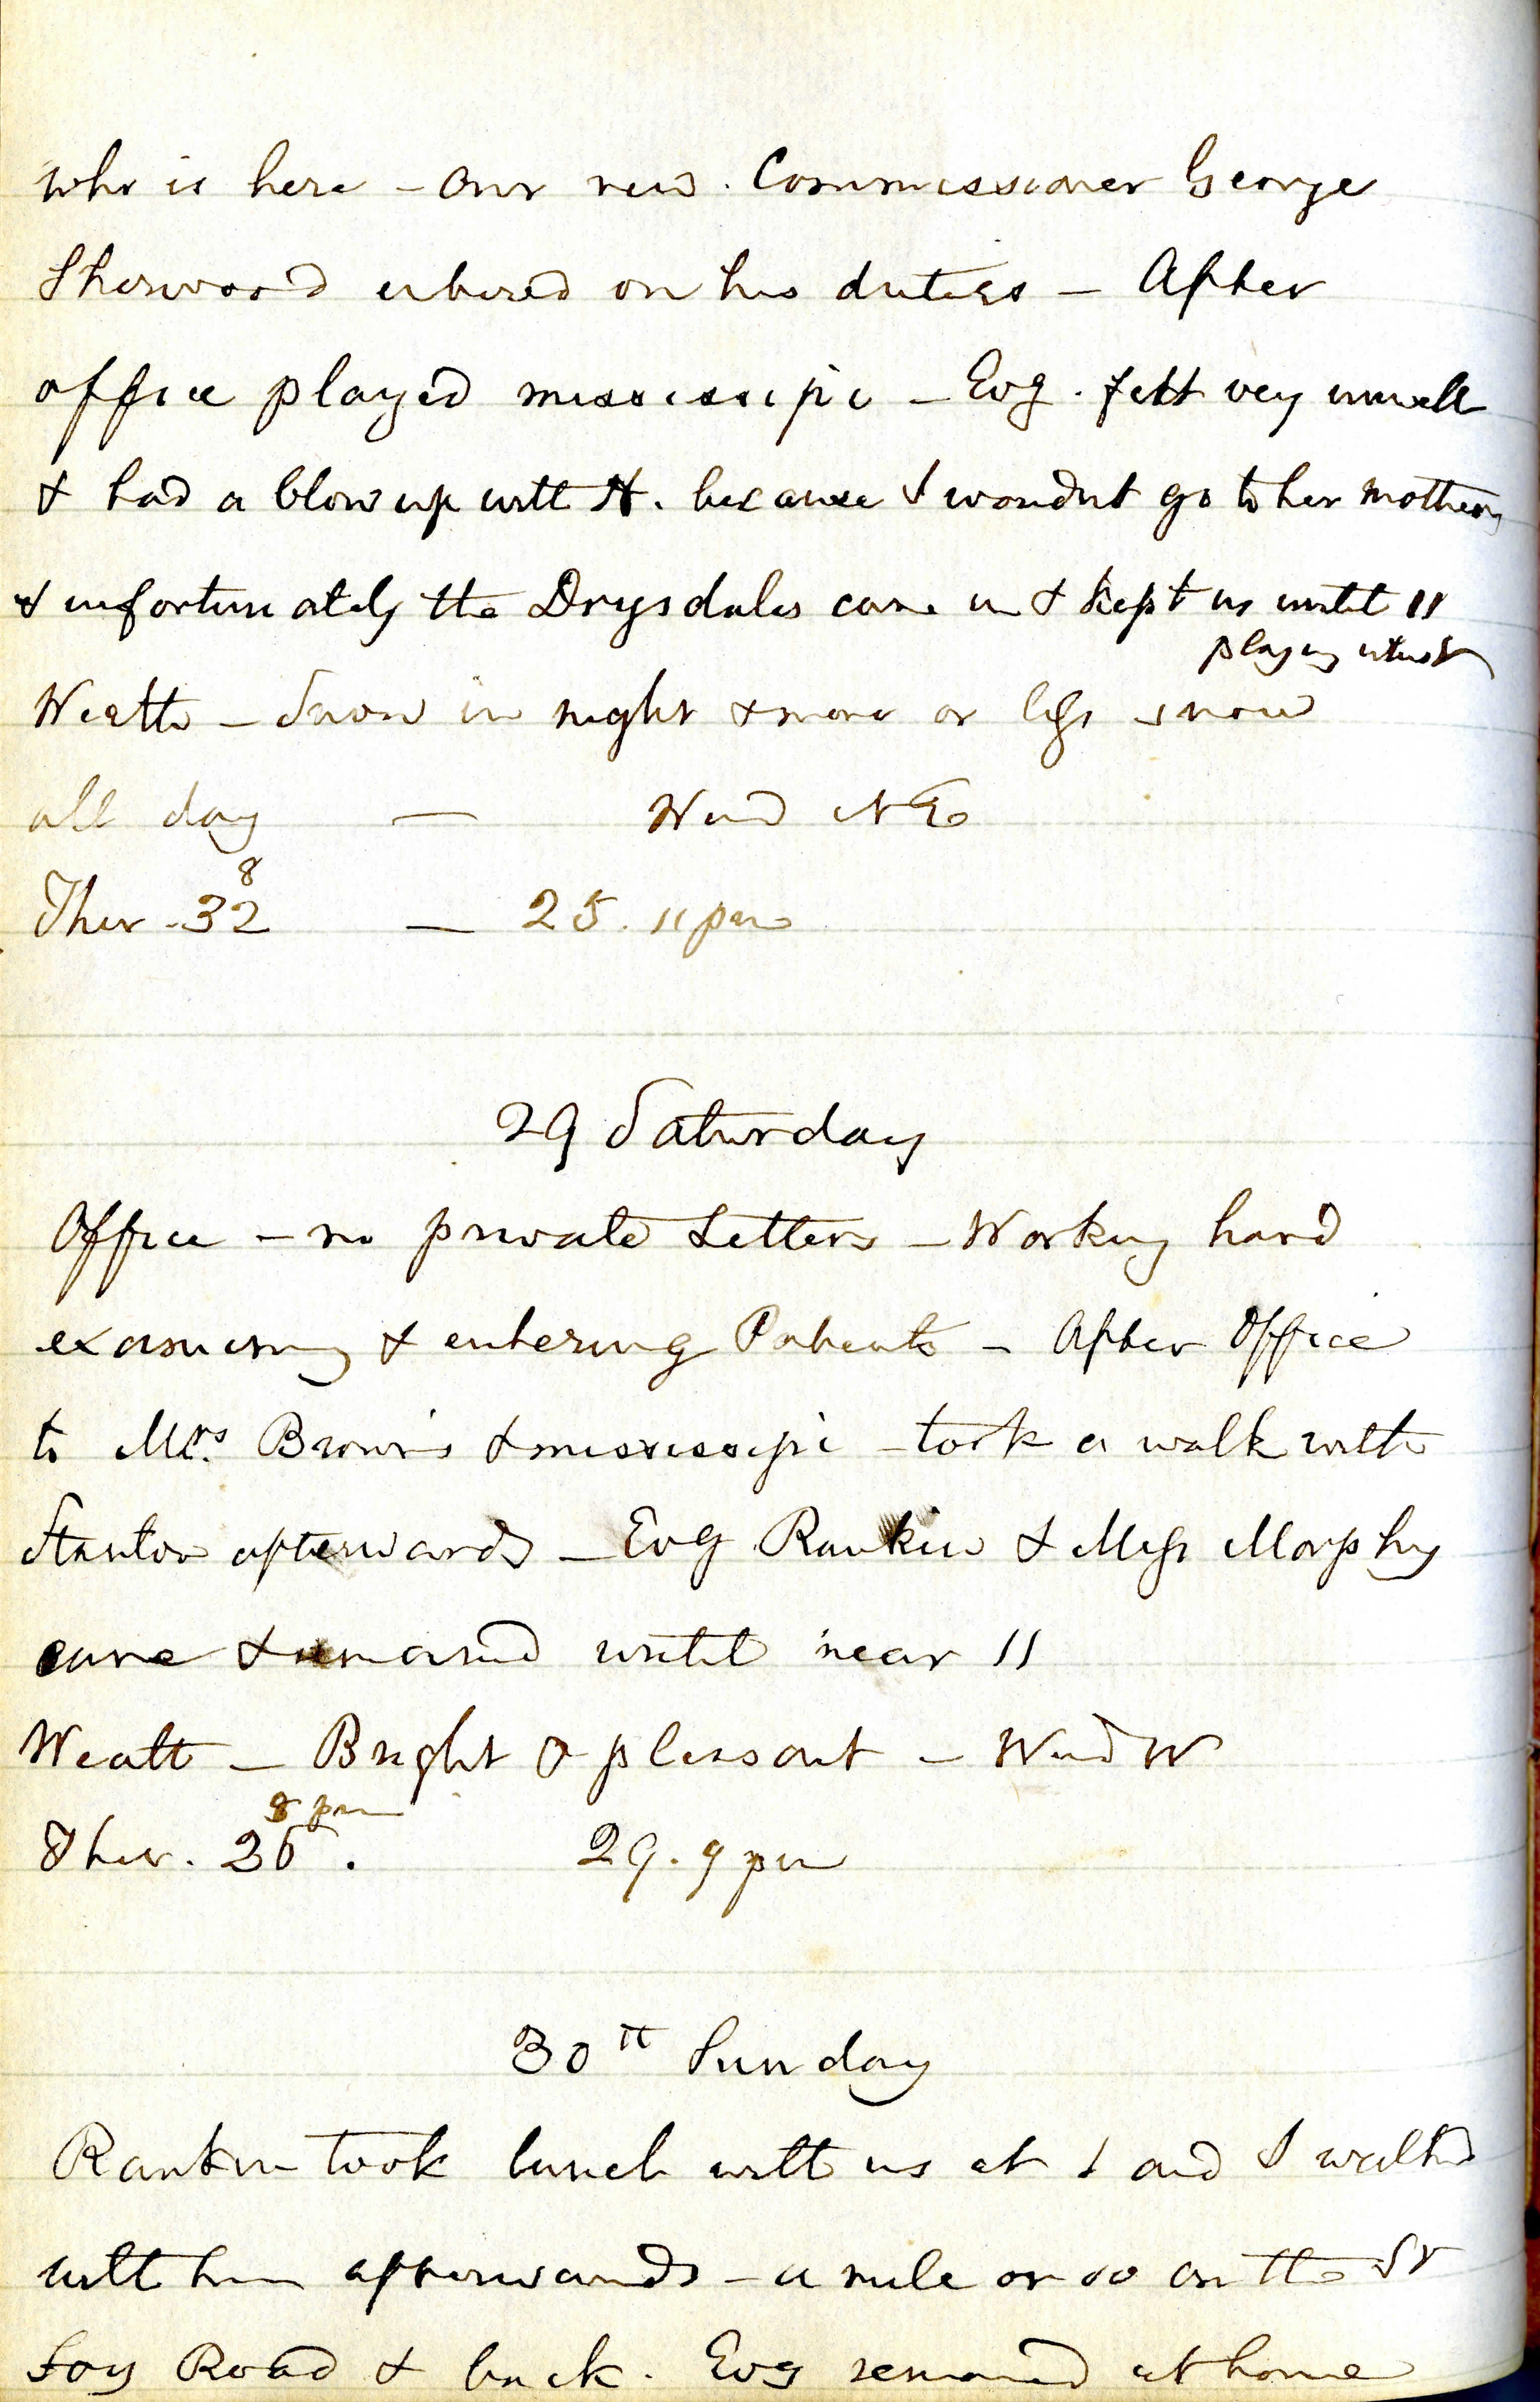 who is here - Our new. Commissioner George
Sherwood entered on his duties - After
office played mississipi - Evg. felt very unwell
& had a blow up with H. because I wouldnt go to her mothers
& unfortunately the Drysdales came in & kept us until 11
playing whist
Weath - Snow in night & more or less snow
all day - Wind NE
8
Ther. 32 - 25. 11 pm
29 Saturday
Office - no private Letters - Working hard
examining & entering Patents - After Office
to Mrs. Brown's & mississipi - took a walk with
Stanton afterwards - Evg Rankin & Miss Morphy
came & remained until near 11
Weath - Bright & pleasant - Wind W
8 pm
Ther. 26. 29. 9 pm
30th Sunday
Rankin took lunch with us at 1 and I walked
with him afterwards - a mile or so on the St
Foy Road & back. Evg remained at home